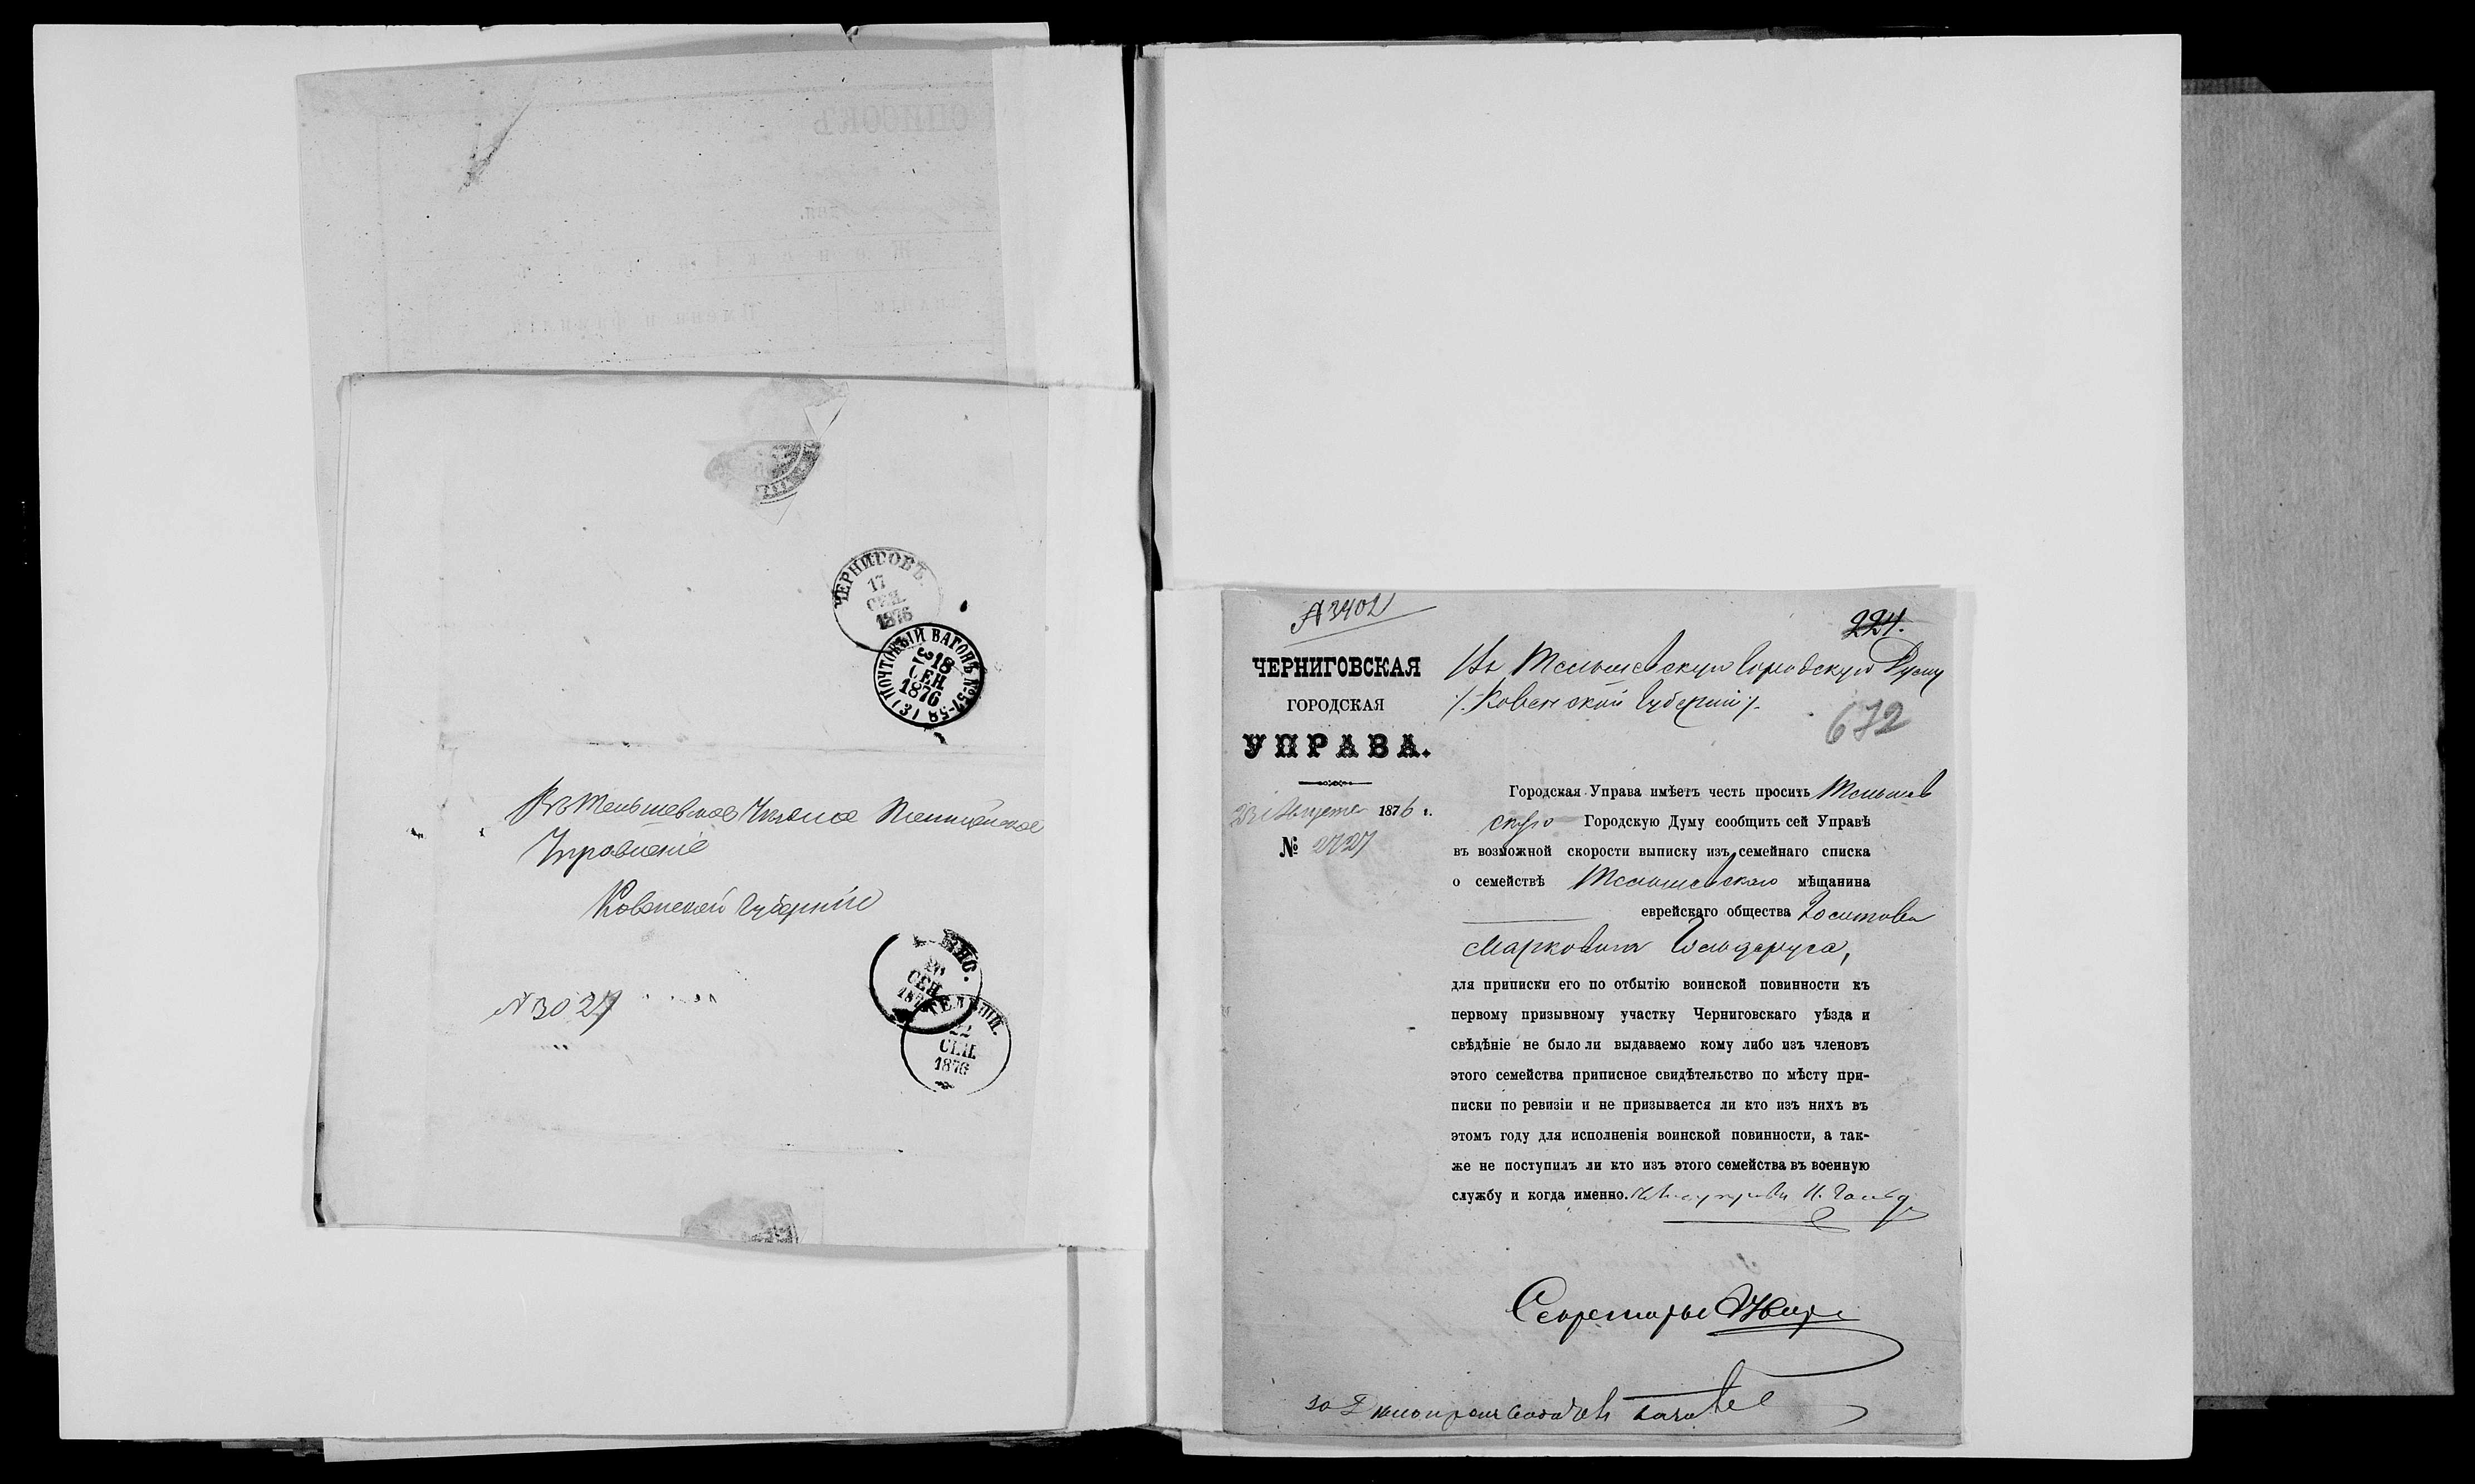 ЧЕРНИГОВЪ.
17
СЕН.
1876
ПОЧТОВЫЙ ВАГОНЪ № 57-58
18
СЕН.
1876
(3)
Въ Тельшевское Уѣздное Полицейское
Управленіе
Ковенской Губерніи
№ 3027
20
СЕН.
ТЕЛЬШИ.
22
СЕН.
1876
№ 3402
224.
ЧЕРНИГОВСКАЯ
ГОРОДСКАЯ
УПРАВА.
23 Августа 1876 г.
№ 2727
Въ Тельшевскую Городскую Думу
/. Ковенской Губерніи ./
672
Городская Управа имѣетъ честь просить Тельшев
скую Городскую Думу сообщить сей Управѣ
въ возможной скорости выписку изъ семейнаго списка
о семействѣ Тельшевскаго мѣщанина
еврейскаго общества
Марковича
для приписки его по отбытію воинской повинности къ
первому призывному участку Черниговскаго уѣзда и
свѣдѣніе не было ли выдаваемо кому либо изъ членовъ
этого семейства приписное свидѣтельство по мѣсту при-
писки по ревизіи и не призывается ли кто изъ нихъ въ
этомъ году для исполненія воинской повинности, а так-
же не поступилъ ли кто изъ этого семейства въ военную
службу и когда именно.
Секретарь
за Дѣлопроизводителя